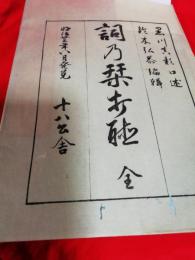 黒川真頼口述
鈴木弘恭編輯
詞乃栞打聴 全
明治廿三年八月発兌 十八公舎